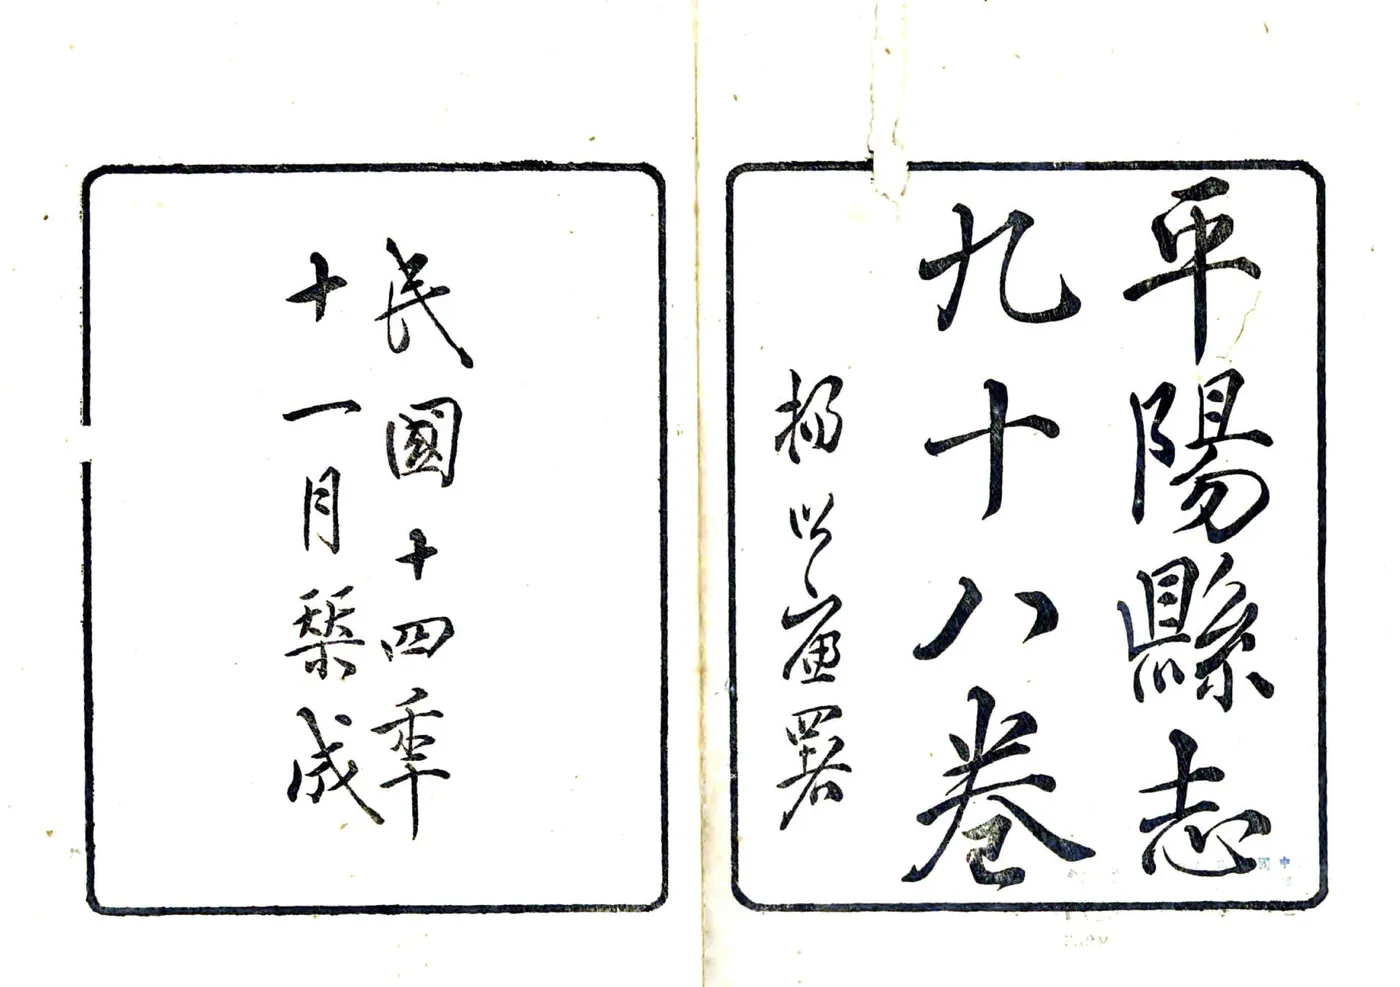 平陽縣志
九十八卷
楊署
民國十四秊
十一月栞成